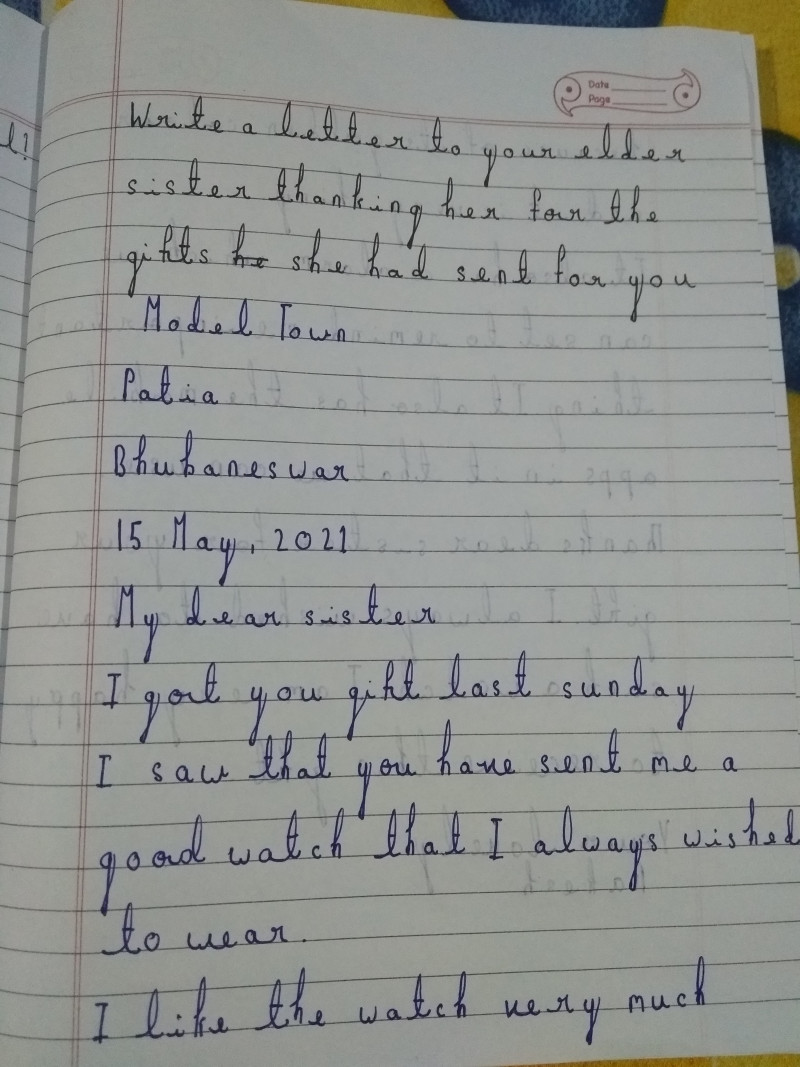 Date
Page
l?
Write a letter to your elder
sister thanking her for the
gihts he she had sent for you
Model Town
Patia
Bhubaneswar
15 May, 2021
My dear sister
I gort you giht last sunday
I saw that you have sent me a
good watch that I always wished
to wear.
I like the watch very much